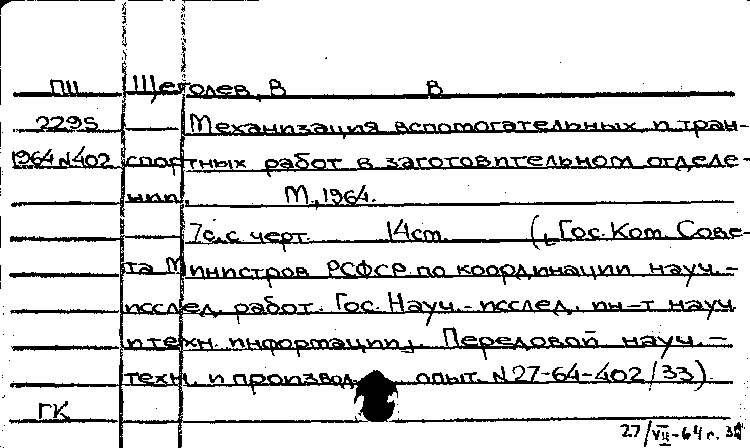 ПШ Щеголев, В В
2295 Механизация вспомогательных и тран-
1964 N402 спортных работ в заготовительном отделе-
нии. М, 1964.
7с.с черт. 14см. (Гос. Ком. Сове-
та Министров РСФСР по координации науч.-
исслед. работ. Гос. Науч.-исслед. ин-т науч
и техн. информации. Передовой науч.-
техн. и производ. опыт. N27-64-402/33)
ГК
27/VII-64 г.